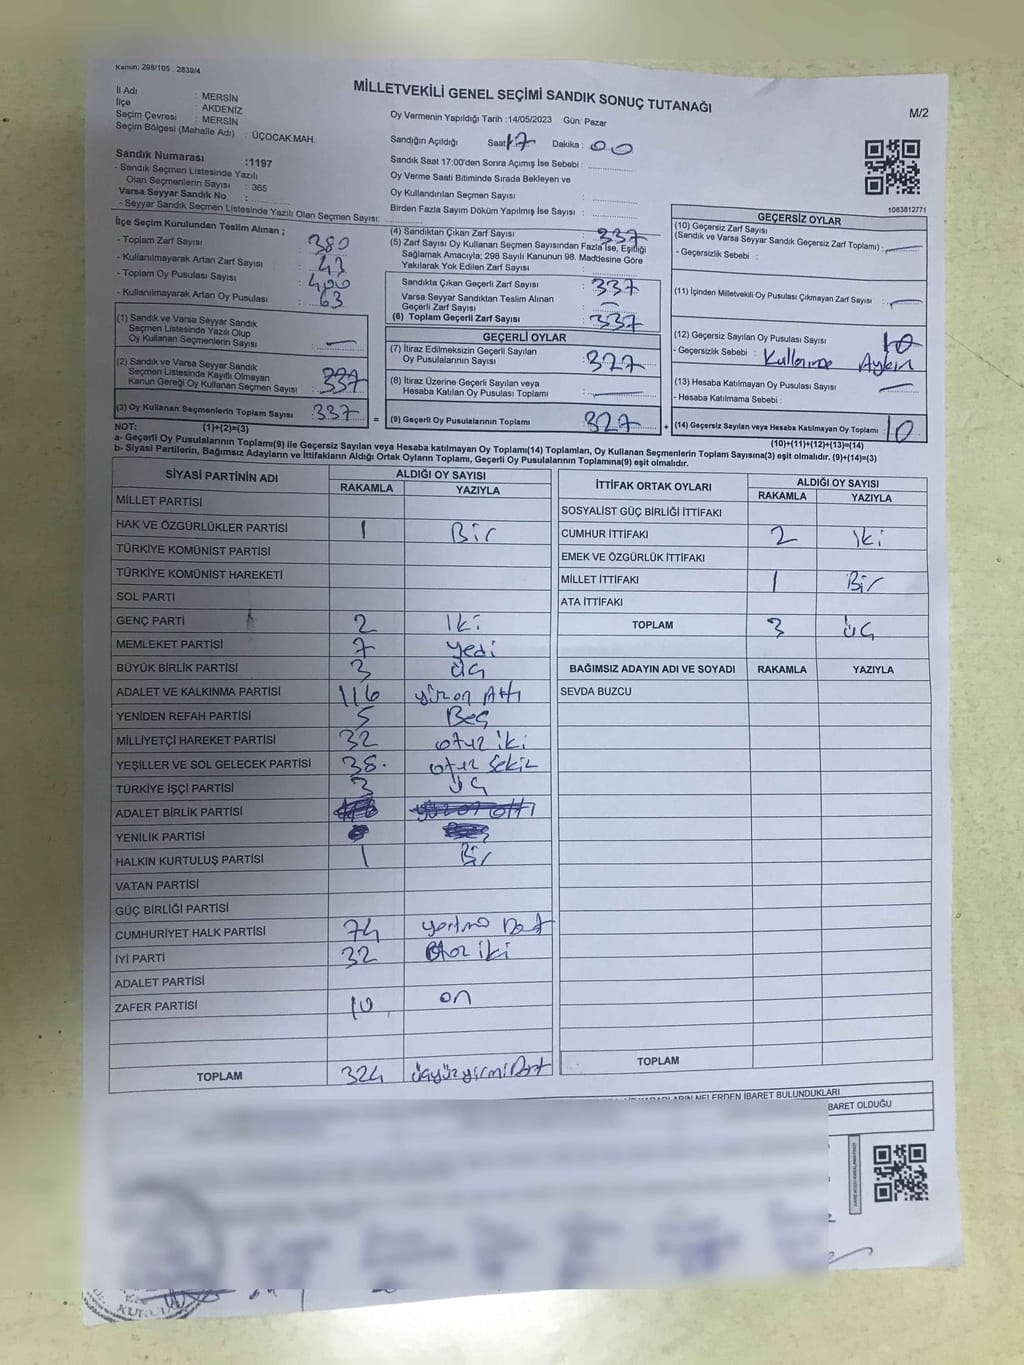 Kanun: 298/105 . 2839/4
MİLLETVEKİLİ GENEL SEÇİMİ SANDIK SONUÇ TUTANAĞI
M/2
İl Adı : MERSİN
İlçe : AKDENİZ
Seçim Çevresi : MERSİN
Seçim Bölgesi (Mahalle Adı) : ÜÇOCAK MAH.
Sandık Numarası :1197
- Sandık Seçmen Listesinde Yazılı
Olan Seçmenlerin Sayısı : 365
Varsa Seyyar Sandık No :
- Seyyar Sandık Seçmen Listesinde Yazılı Olan Seçmen Sayısı:
Oy Vermenin Yapıldığı Tarih :14/05/2023 Gün: Pazar
Sandığın Açıldığı Saat: 17 Dakika : 00
Sandık Saat 17:00'den Sonra Açımış İse Sebebi :
Oy Verme Saati Bitiminde Sırada Bekleyen ve
Oy Kullandırılan Seçmen Sayısı :
Birden Fazla Sayım Döküm Yapılmış İse Sayısı :
1083812771
İlçe Seçim Kurulundan Teslim Alınan ;
- Toplam Zarf Sayısı : 380
- Kullanılmayarak Artan Zarf Sayısı : 43
- Toplam Oy Pusulası Sayısı : 400
- Kullanılmayarak Artan Oy Pusulası : 63
(1) Sandık ve Varsa Seyyar Sandık
Seçmen Listesinde Yazılı Olup
Oy Kullanan Seçmenlerin Sayısı : —
(2) Sandık ve Varsa Seyyar Sandık
Seçmen Listesinde Kayıtlı Olmayan
Kanun Gereği Oy Kullanan Seçmen Sayısı : 337
(3) Oy Kullanan Seçmenlerin Toplam Sayısı : 337 =
(4) Sandıktan Çıkan Zarf Sayısı : 337
(5) Zarf Sayısı Oy Kullanan Seçmen Sayısından Fazla İse, Eşitliği
Sağlamak Amacıyla; 298 Sayılı Kanunun 98. Maddesine Göre
Yakılarak Yok Edilen Zarf Sayısı :
Sandıkta Çıkan Geçerli Zarf Sayısı : 337
Varsa Seyyar Sandıktan Teslim Alınan
Geçerli Zarf Sayısı : —
(6) Toplam Geçerli Zarf Sayısı : 337
GEÇERLİ OYLAR
(7) İtiraz Edilmeksizin Geçerli Sayılan
Oy Pusulalarının Sayısı : 327
(8) İtiraz Üzerine Geçerli Sayılan veya
Hesaba Katılan Oy Pusulası Toplamı : —
(9) Geçerli Oy Pusulalarının Toplamı : 327 +
GEÇERSİZ OYLAR
(10) Geçersiz Zarf Sayısı
(Sandık ve Varsa Seyyar Sandık Geçersiz Zarf Toplamı) : —
- Geçersizlik Sebebi :
(11) İçinden Milletvekili Oy Pusulası Çıkmayan Zarf Sayısı : —
(12) Geçersiz Sayılan Oy Pusulası Sayısı : 10
- Geçersizlik Sebebi : Kullanıma Aykırı
(13) Hesaba Katılmayan Oy Pusulası Sayısı : —
- Hesaba Katılmama Sebebi :
(14) Geçersiz Sayılan veya Hesaba Katılmayan Oy Toplamı : 10
NOT: (1)+(2)=(3)
(10)+(11)+(12)+(13)=(14)
a- Geçerli Oy Pusulalarının Toplamı(9) ile Geçersiz Sayılan veya Hesaba katılmayan Oy Toplamı(14) Toplamları, Oy Kullanan Seçmenlerin Toplam Sayısına(3) eşit olmalıdır. (9)+(14)=(3)
b- Siyasi Partilerin, Bağımsız Adayların ve İttifakların Aldığı Ortak Oyların Toplamı, Geçerli Oy Pusulalarının Toplamına(9) eşit olmalıdır.
SİYASİ PARTİNİN ADI ALDIĞI OY SAYISI
RAKAMLA YAZIYLA
MİLLET PARTİSİ
HAK VE ÖZGÜRLÜKLER PARTİSİ 1 Bir
TÜRKİYE KOMÜNİST PARTİSİ
TÜRKİYE KOMÜNİST HAREKETİ
SOL PARTİ
GENÇ PARTİ 2 İki
MEMLEKET PARTİSİ 7 yedi
BÜYÜK BİRLİK PARTİSİ 3 üç
ADALET VE KALKINMA PARTİSİ 116 yüz on Altı
YENİDEN REFAH PARTİSİ 5 Beş
MİLLİYETÇİ HAREKET PARTİSİ 32 otuz iki
YEŞİLLER VE SOL GELECEK PARTİSİ 38. otuz Sekiz
TÜRKİYE İŞÇİ PARTİSİ 3 üç
ADALET BİRLİK PARTİSİ
YENİLİK PARTİSİ
HALKIN KURTULUŞ PARTİSİ 1 Bir
VATAN PARTİSİ
GÜÇ BİRLİĞİ PARTİSİ
CUMHURİYET HALK PARTİSİ 74 yetmiş Dört
İYİ PARTİ 32 otuz iki
ADALET PARTİSİ
ZAFER PARTİSİ 10 on
TOPLAM 324 üçyüz yirmi Dört
İTTİFAK ORTAK OYLARI ALDIĞI OY SAYISI
RAKAMLA YAZIYLA
SOSYALİST GÜÇ BİRLİĞİ İTTİFAKI
CUMHUR İTTİFAKI 2 İki
EMEK VE ÖZGÜRLÜK İTTİFAKI
MİLLET İTTİFAKI 1 Bir
ATA İTTİFAKI
TOPLAM 3 üç
BAĞIMSIZ ADAYIN ADI VE SOYADI RAKAMLA YAZIYLA
SEVDA BUZCU
TOPLAM
NELERDEN İBARET BULUNDUKLARI
İBARET OLDUĞU